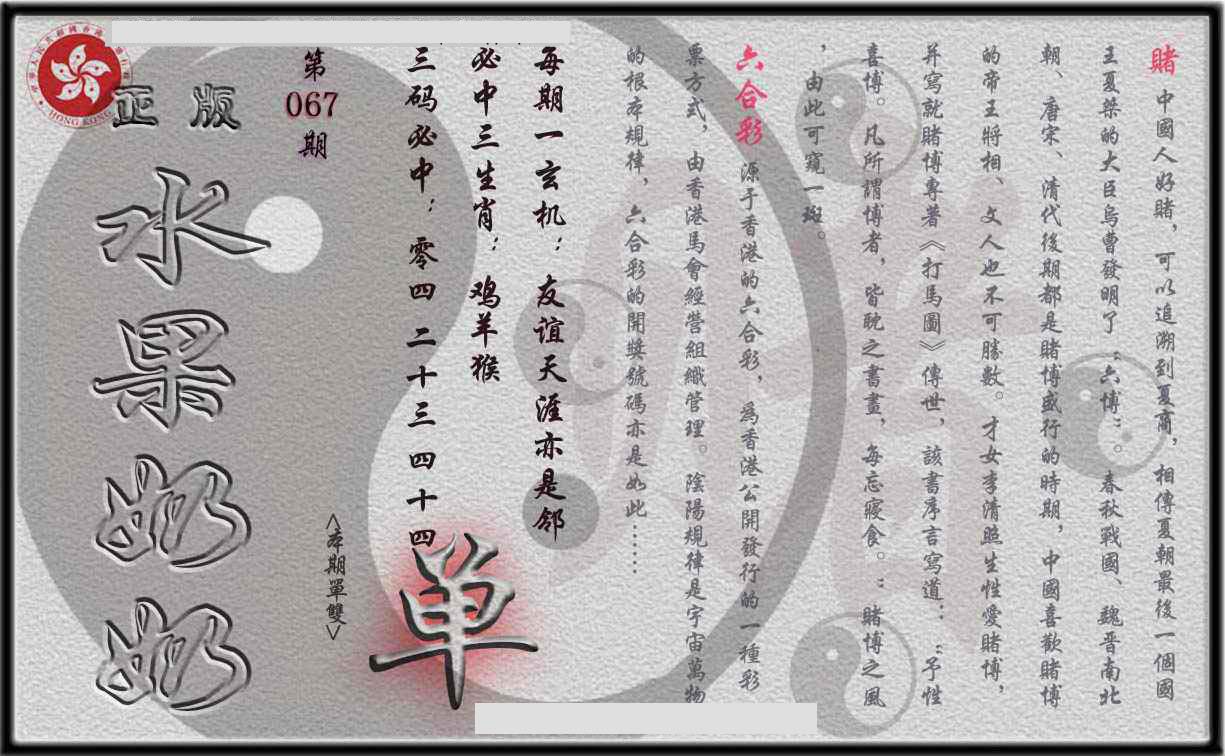 賭 中國人好賭，可以追溯到夏商，相傳夏朝最後一個國
王夏桀的大臣烏曹發明了“六博”。春秋戰國、魏晋南北
朝、唐宋、清代後期都是賭博盛行的時期，中國喜歡賭博
的帝王將相、文人也不可勝數。才女李清照生性愛賭博，
并寫就賭博專著《打馬圖》傳世，該書序言寫道：“予性
喜博。凡所謂博者，皆耽之書晝，每忘寢食。”賭博之風
，由此可窺一斑。
六合彩 源于香港的六合彩，爲香港公開發行的一種彩
票方式，由香港馬會經營組織管理。陰陽規律是宇宙萬物
的根本規律，六合彩的開獎號碼亦是如此……
每期一玄机：友谊天涯亦是邻
必中三生肖：鸡羊猴
三码必中：零四 二十三 四十四
单
<本期單雙>
第
067
期
正版
水果奶奶
HONG KONG